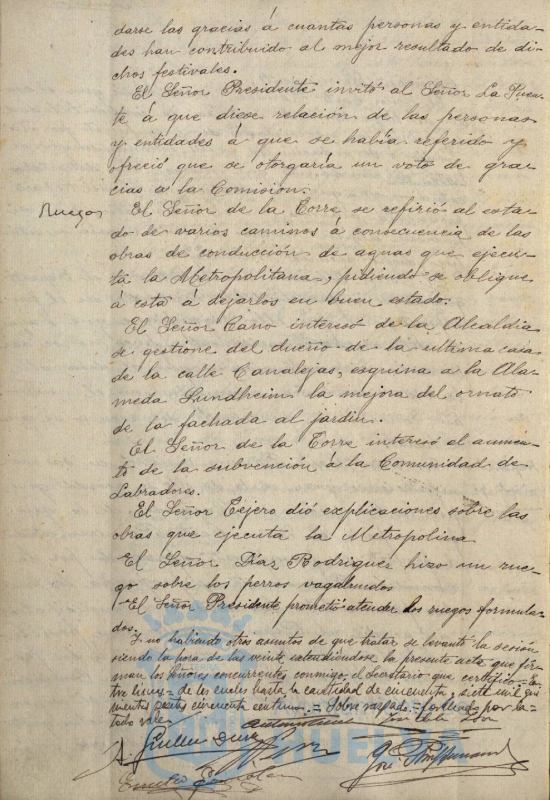 darse las gracias á cuantas personas y entida-
des han contribuido al mejor resultado de di-
chos festivales.
El Señor Presidente invitó al Señor La Puen-
te á que diese relación de las personas
y entidades á que se había referido y
ofreció que se otorgaría un voto de gra-
cias á la Comisión.
Ruegos
El Señor de la Torre se refirió al esta-
do de varios caminos á consecuencia de las
obras de conducción de aguas que ejecu-
ta la Metropolitana, pidiendo se obligue
á esta á dejarlos en buen estado.
El Señor Cano interesó de la Alcaldia
se gestione del dueño de la ultima casa
de la calle Canalejas, esquina a la Ala-
meda Sundheim la mejora del ornato
de la fachada al jardin.
El Señor de la Torre interesó el aumen-
to de la subvención á la Comunidad de
Labradores.
El Señor Tejero dió explicaciones sobre las
obras que ejecuta la Metropolina
El Señor Díaz Rodriguez hizo un rue-
go sobre los perros vagabundos
El Señor Presidente prometió atender los ruegos formula-
dos.
Y no habiendo otros asuntos de que tratar se levantó la sesión
siendo la hora de las veinte extendiéndose la presente acta que fir-
man los señores concurrentes conmigo el Secretario que certifico. = En-
tre lineas = de las cuales hasta la cantidad de cincuenta y siete mil qui-
nientas pesetas cincuenta centimos. = Sobre raspado =
todo vale.
HUELVA